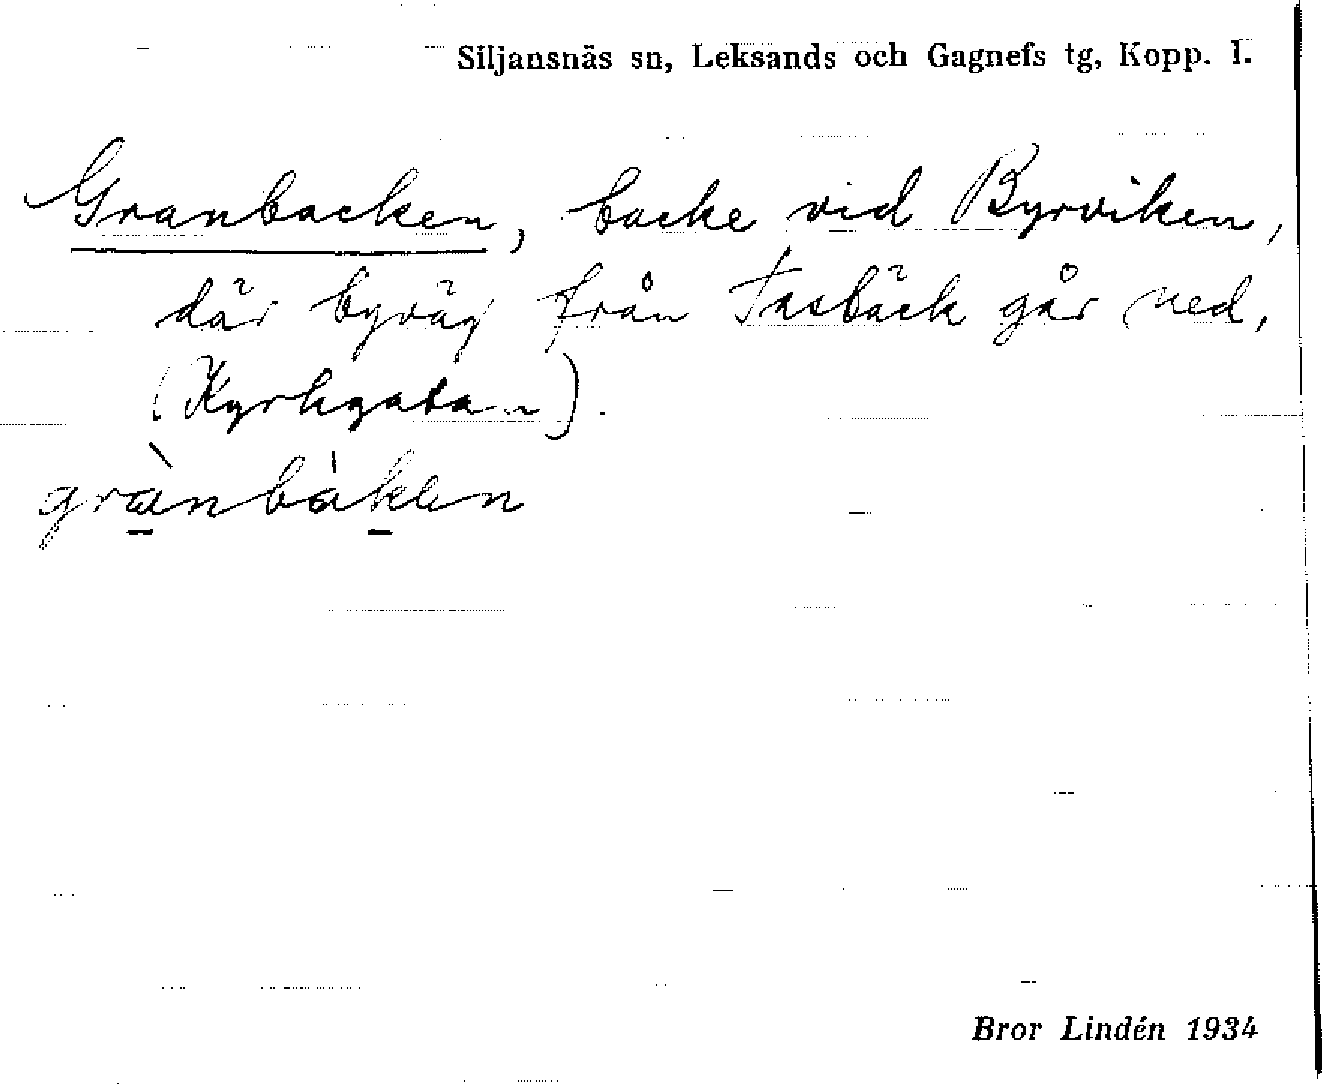 Siljansnäs sn, Leksands och Gagnefs tg, Kopp. l.
Granbacken, backe vid Byrviken,
där byväg från Tasbäck går ned,
(Kyrkgatan).
grànbàken
Bror Lindén 1934